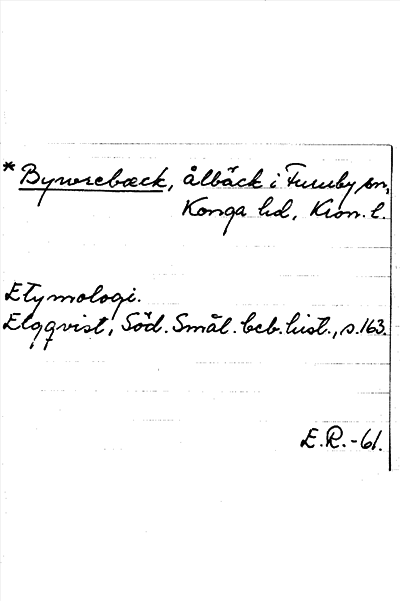 * Byworebæck, ålbäck i Furuby sn,
Konga hd, Kron. l.
Etymologi.
Elqqvist, Söd. Smål. beb. hist., s. 163.
E. R. -61.